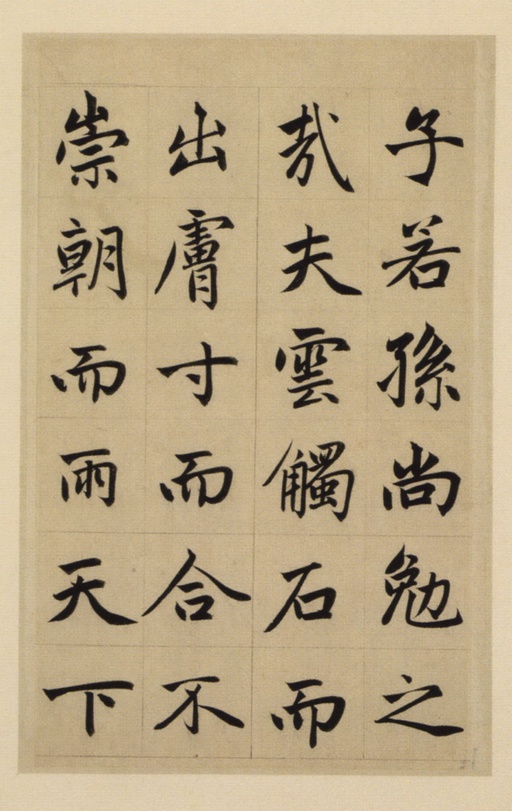 子若孫尚勉之
㢤夫雲觸石而
出膚寸而合不
崇朝而雨天下